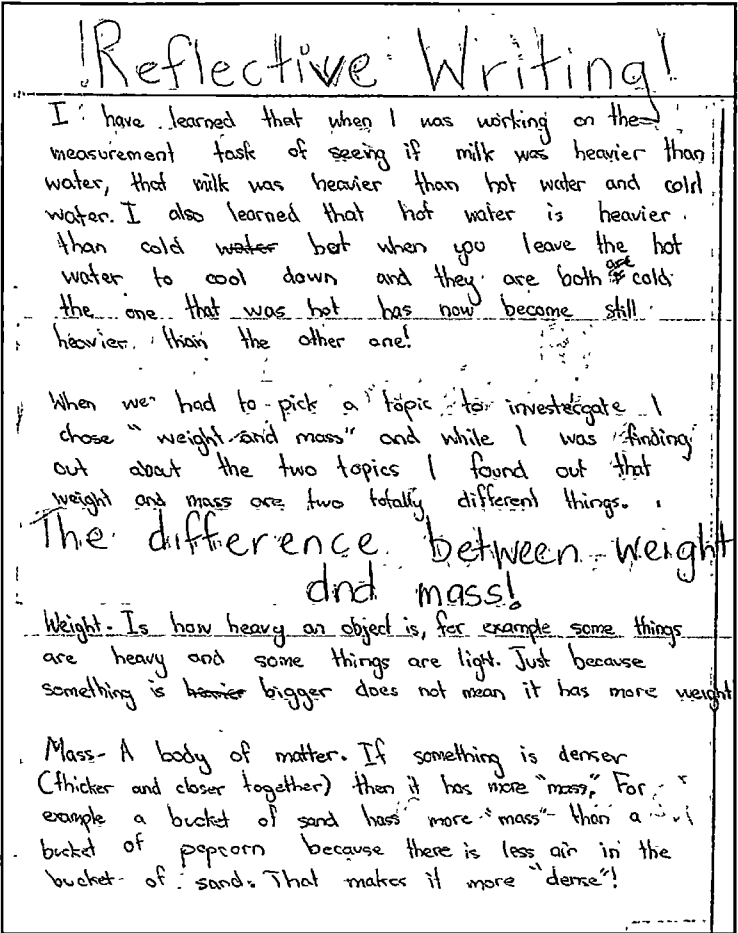 !Reflective Writing!
I have learned that when I was working on the
measurement task of seeing if milk was heavier than
water, that milk was heavier than hot water and cold
water. I also learned that hot water is heavier
than cold water but when you leave the hot
water to cool down and they are both are cold
the one that was hot has now become still
heavier than the other one!
When we had to pick a topic to investegate I
chose "weight and mass" and while I was finding
out about the two topics I found out that
weight and mass are two totally different things.
The difference between weight
and mass!
Weight- Is how heavy an object is, for example some things
are heavy and some things are light. Just because
something is heavier bigger does not mean it has more weight
Mass- A body of matter. If something is denser
(thicker and closer together) then it has more "mass," For
example a bucket of sand hass more "mass" than a
bucket of popcorn because there is less air in the
bucket of sand. That makes it more "dense"!